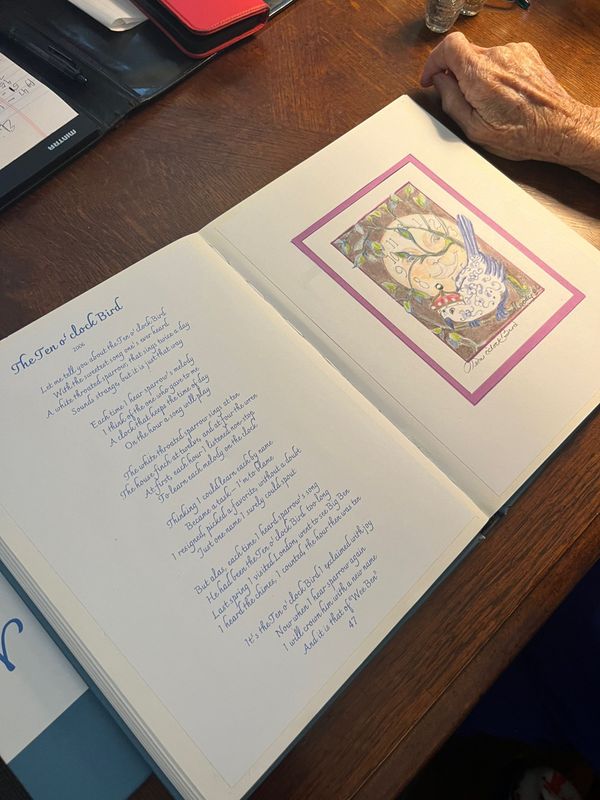 The Ten o'clock Bird
2006
Let me tell you about the Ten o'clock Bird
With the sweetest song one's ever heard
A white throated sparrow that sings twice a day
Sounds strange, but it is just that way
Each time I hear sparrow's melody
I think of the one who gave to me
A clock that keeps the time of day
On the hour a song will play
The white throated sparrow sings at ten
The house finch at twelve, and at four the wren
At first, each hour I listened non-stop
To learn each melody on the clock
Thinking I could learn each by name
Became a task—I'm to blame
I resigned, picked a favorite without a doubt
Just one name I surely could spout
But alas, each time I heard sparrow's song
He had been the Ten o'clock Bird too long
Last spring I visited London, went to see Big Ben
I heard the chimes, I counted, the hour then was ten
It's the Ten o'clock Bird I exclaimed with joy
Now when I hear sparrow again
I will crown him with a new name
And it is that of "Wee Ben"
47
11
12
9
8
O'clock Bird
MINTRA